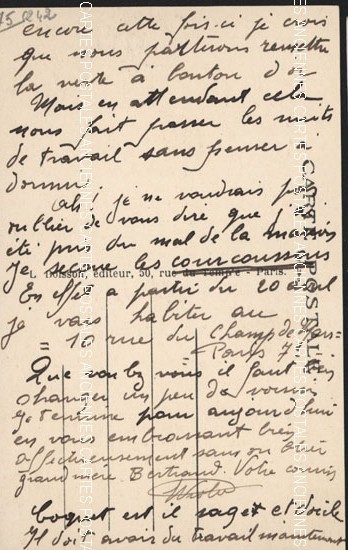 15 12 42
encore cette fois-ci je crois
que nous pourrons remettre
la veste à bouton d'or
Mais en attendant cela
nous fait passer les nuits
de travail sans penser à
dormir.
Ah! je ne voudrais pas
oublier de vous dire que j'ai
été pris du mal de la maison
Je secoue les
CARTE POSTALE
L. Boisson, éditeur, 50, rue du Temple - Paris.
En effet à partir du 20 avril
je vais habiter au
= 10 rue du Champ de Mars =
Paris 7
Que voulez vous il faut bien
changer un peu de voisin
Je termine pour aujourd'hui
en vous embrassant bien
affectueusement sans oublier
grand mère Bertrand. Votre cousin
Coquet est il sage et docile
Il doit avoir du travail maintenant
CARTES POSTALES ANCIENNES